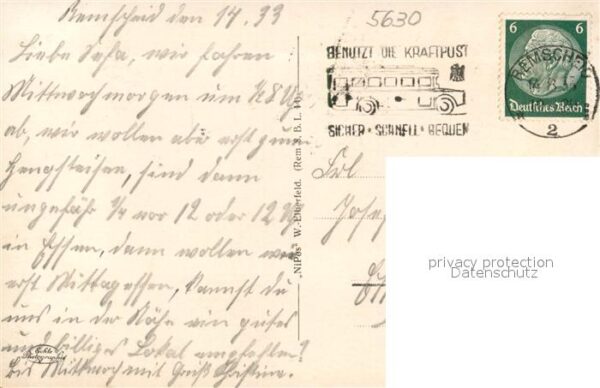 Remscheid den 14. 33
Liebe Sefa, wir fahren
Mittwochmorgen um 1/2 8 Uhr
ab, wir wollen aber erst zum
Hengsteysee, sind dann
ungefähr 1/4 vor 12 oder 12 Uhr
in Essen, dann wollen wir
erst Mittagessen, kannst du
uns in der Nähe ein gutes
und billiges Lokal empfehlen?
Bis Mittwoch mit Gruß Christine.
Echte Photographie
"NiPos" W.-Elberfeld. (Rem S. B. L. 14)
5630
BENUTZT DIE KRAFTPOST
SICHER · SCHNELL · BEQUEM
6 6
Deutsches Reich
REMSCHEID
2
Frl
Josef
privacy protection
Datenschutz